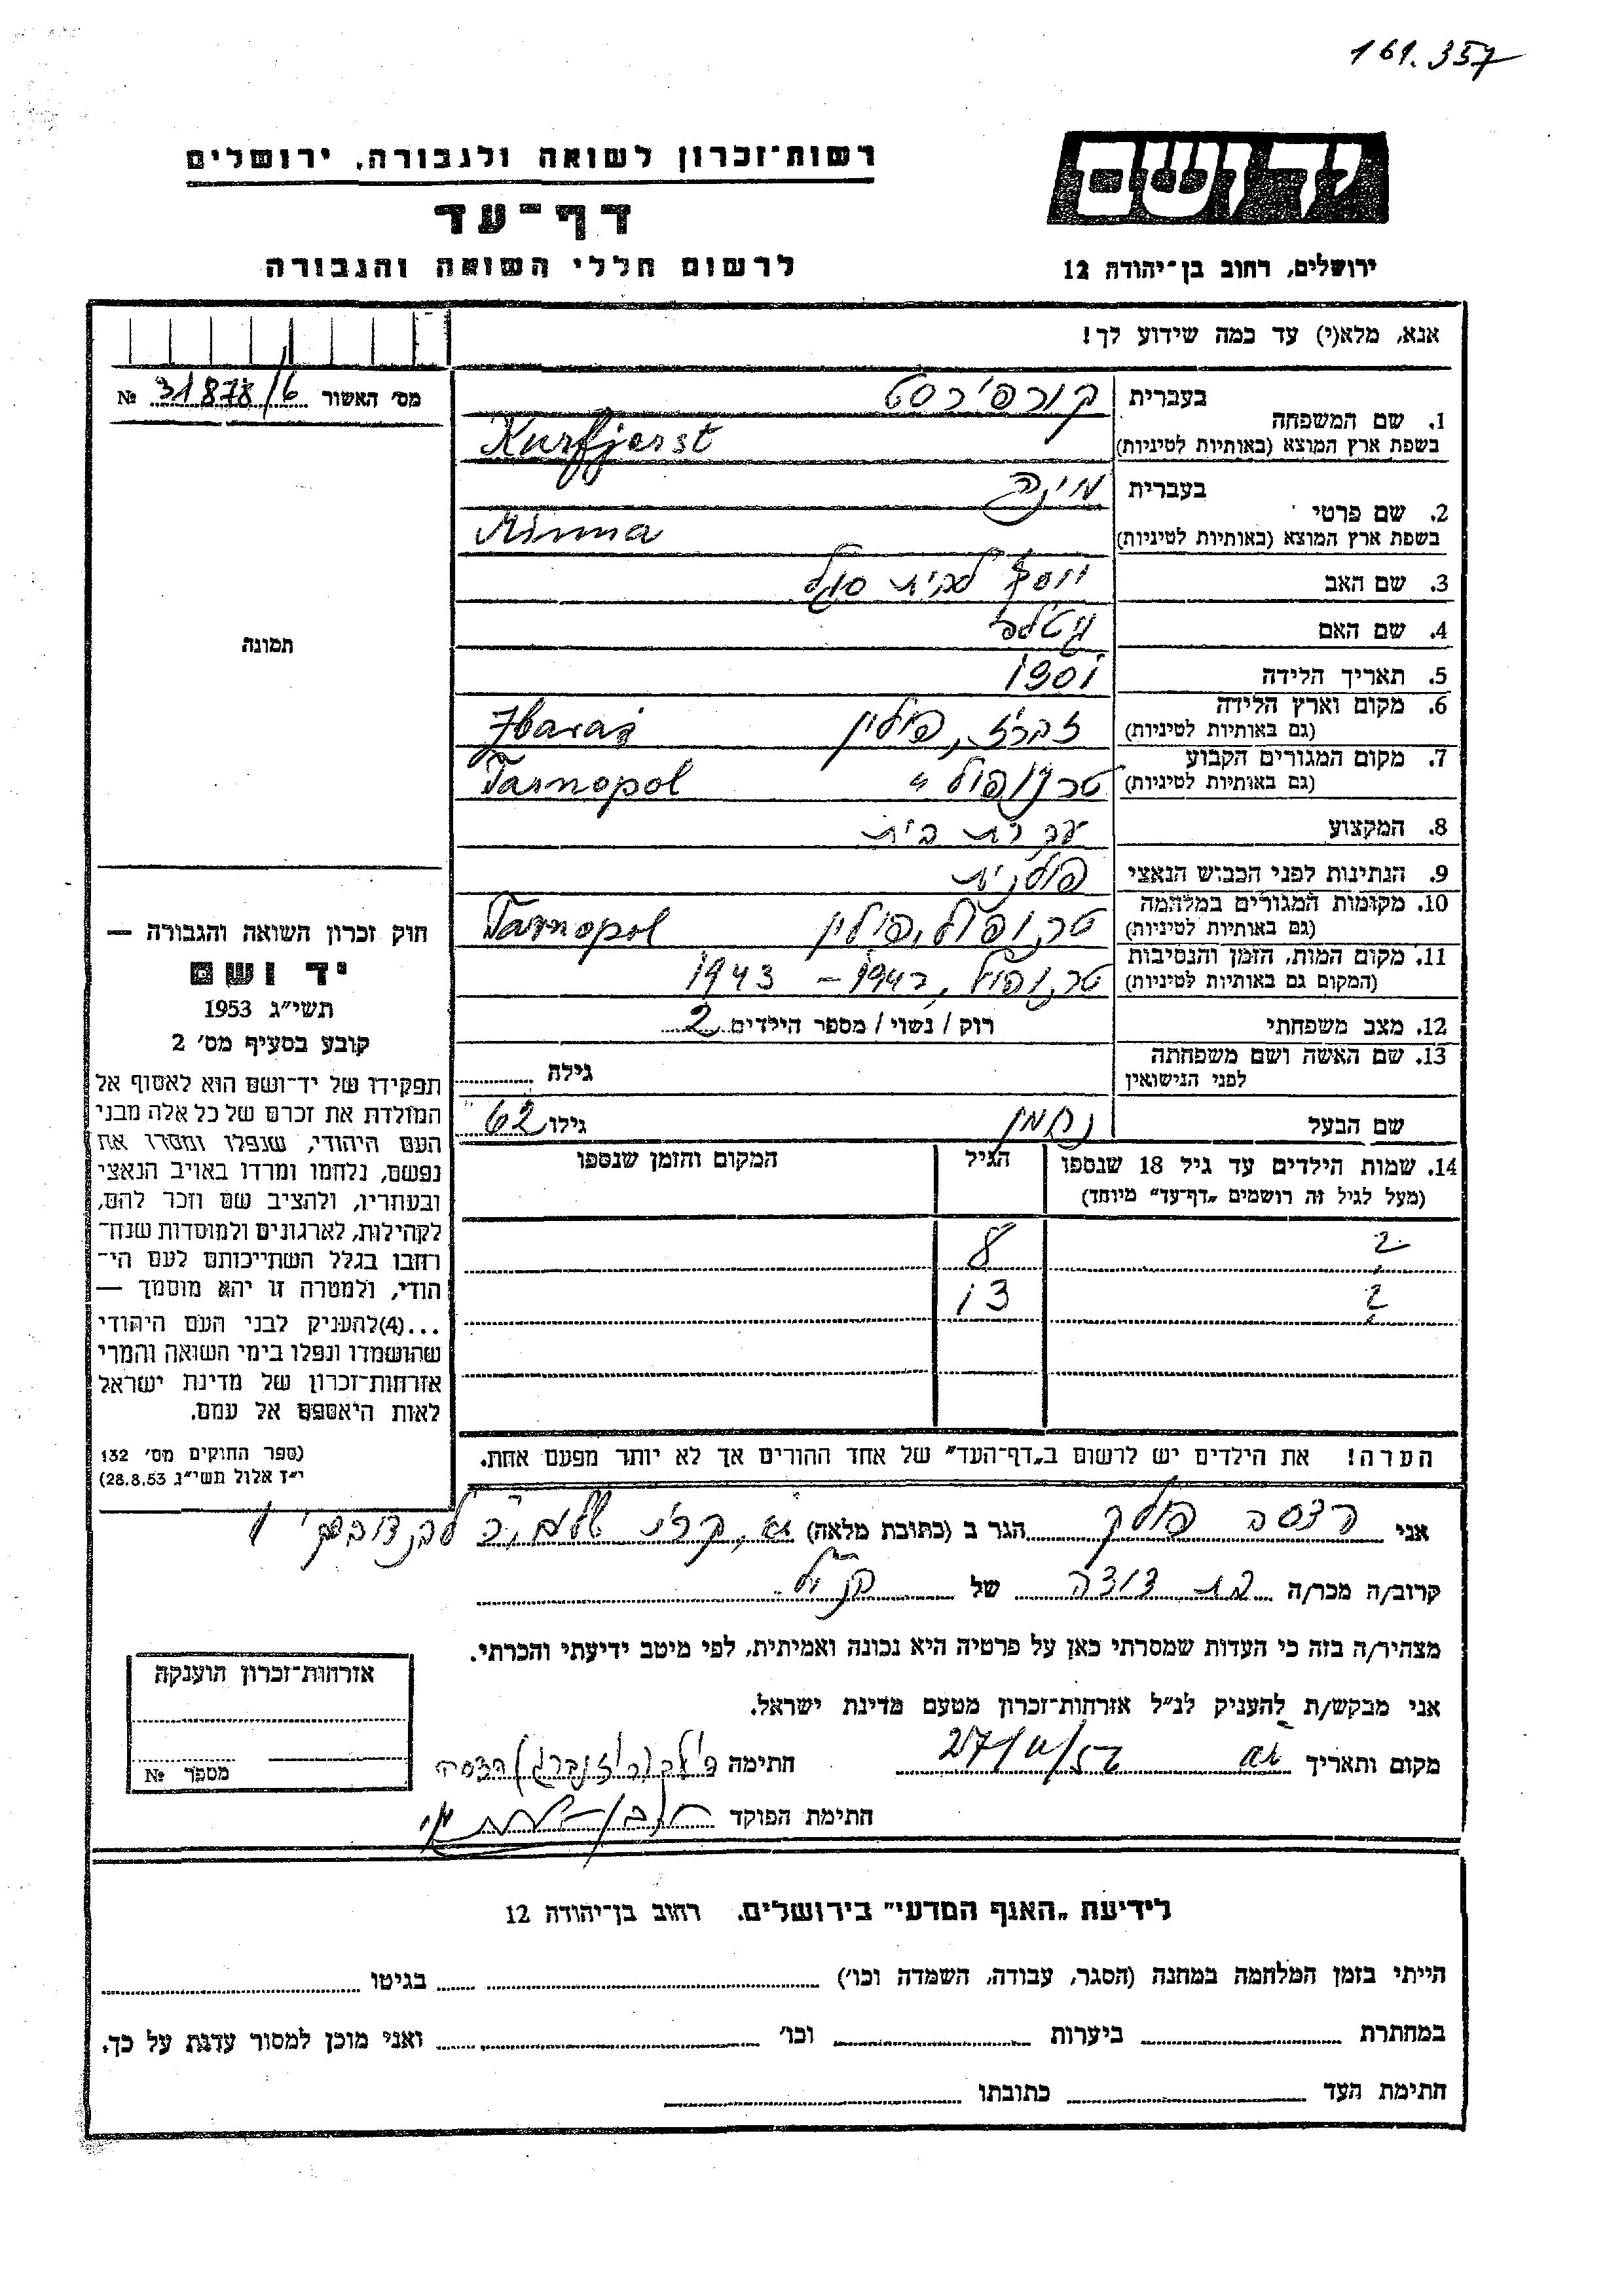 161.357
יד ושם
ירושלים, רחוב בן־יהודה 12
רשות־זכרון לשואה ולגבורה, ירושלים
דף־עד
לרשום חללי השואה והגבורה
אנא, מלא(י) עד כמה שידוע לך!
מס' האשור 31878/6 №
תמונה
1. שם המשפחה
בעברית קורפירסט
בשפת ארץ המוצא (באותיות לטיניות) Kurfjerst
2. שם פרטי
בעברית מינה
בשפת ארץ המוצא (באותיות לטיניות) Minna
3. שם האב יוסף לבית סגל
4. שם האם גיטלה
5. תאריך הלידה 1901
6. מקום וארץ הלידה
(גם באותיות לטיניות) זברז', פולין Zbaraż
7. מקום המגורים הקבוע
(גם באותיות לטיניות) טרנופול " Tarnopol
8. המקצוע עקרת בית
9. הנתינות לפני הכבוש הנאצי פולנית
10. מקומות המגורים במלחמה
(גם באותיות לטיניות) טרנופול, פולין Tarnopol
11. מקום המות, הזמן והנסיבות
(המקום גם באותיות לטיניות) טרנופול, 1942 – 1943
12. מצב משפחתי רוק / נשוי / מספר הילדים 2
13. שם האשה ושם משפחתה
לפני הנישואין גילה
שם הבעל נחמן גילו 62
14. שמות הילדים עד גיל 18 שנספו הגיל המקום והזמן שנספו
(מעל לגיל זה רושמים „דף־עד" מיוחד)
? 8
? 13
הערה! את הילדים יש לרשום ב„דף־העד" של אחד ההורים אך לא יותר מפעם אחת.
חוק זכרון השואה והגבורה —
יד ושם
תשי"ג 1953
קובע בסעיף מס' 2
תפקידו של יד־ושם הוא לאסוף אל
המולדת את זכרם של כל אלה מבני
העם היהודי, שנפלו ומסרו את
נפשם, נלחמו ומרדו באויב הנאצי
ובעוזריו, ולהציב שם וזכר להם,
לקהילות, לארגונים ולמוסדות שנח־
רחבו בגלל השתייכותם לעם הי־
הודי, ולמטרה זו יהא מוסמך —
...(4)להעניק לבני העם היהודי
שהושמדו ונפלו בימי השואה והמרי
אזרחות־זכרון של מדינת ישראל
לאות היאספם אל עמם.
(ספר החוקים מס' 132
י"ז אלול תשי"ג 28.8.53)
אני הדסה פולק הגר ב (כתובת מלאה)
קרוב/ה מכר/ה בת דודה של הנ"ל
מצהיר/ה בזה כי העדות שמסרתי כאן על פרטיה היא נכונה ואמיתית, לפי מיטב ידיעתי והכרתי.
אני מבקש/ת להעניק לנ"ל אזרחות־זכרון מטעם מדינת ישראל.
מקום ותאריך חתימה
חתימת הפוקד
אזרחות־זכרון הוענקה
מספר №
לידיעת „האגף המדעי" בירושלים. רחוב בן־יהודה 12
הייתי בזמן המלחמה במחנה (הסגר, עבודה, השמדה וכו') בגיטו
במחתרת ביערות וכו' ואני מוכן למסור עדות על כך.
חתימת העד כתובתו